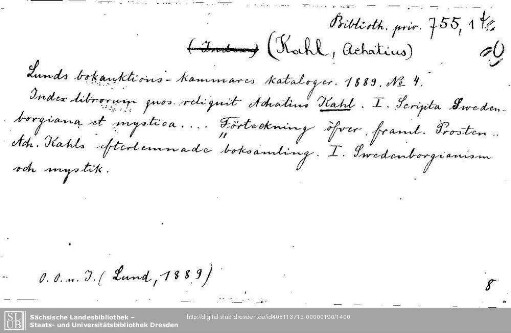 Biblioth. priv. 755, 1
(Index) (Kahl, Achatius)
Lunds bokauktions-kammares kataloger. 1889. No 4.
Index librorum quos reliquit Achatius Kahl. I. Scripta Sweden-
borgiana et mystica.... Förteckning öfver framl. Prosten
Ach. Kahls efterlemnade boksamling. I. Swedenborgianism
och mystik.
O. O. u. J. (Lund, 1889)
8
SLUB
Sächsische Landesbibliothek –
Staats- und Universitätsbibliothek Dresden